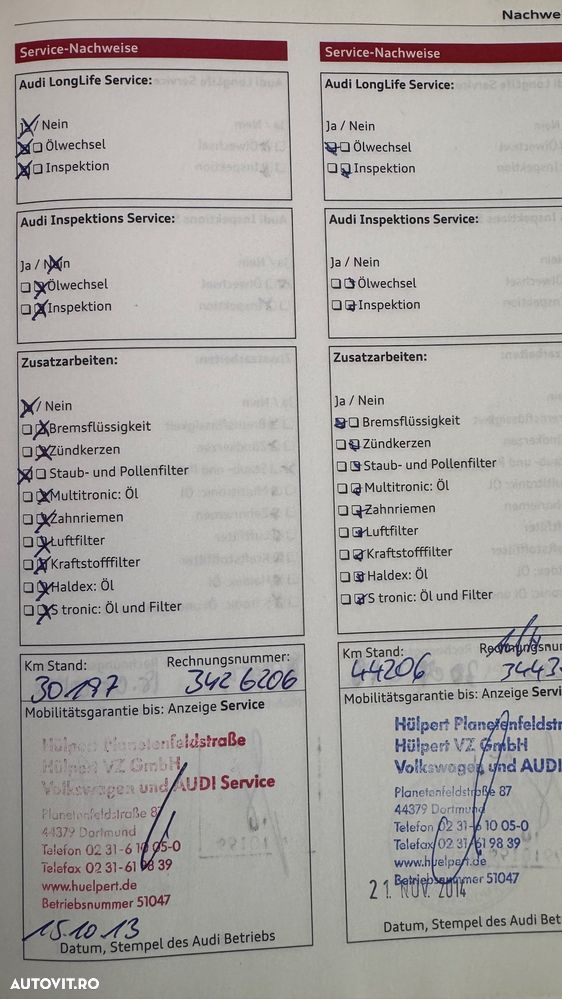 Nachwe
Service-Nachweise
Audi LongLife Service:
Ja / Nein
Ölwechsel
Inspektion
Audi Inspektions Service:
Ja / Nein
Ölwechsel
Inspektion
Zusatzarbeiten:
Ja / Nein
Bremsflüssigkeit
Zündkerzen
Staub- und Pollenfilter
Multitronic: Öl
Zahnriemen
Luftfilter
Kraftstofffilter
Haldex: Öl
S tronic: Öl und Filter
Km Stand: Rechnungsnummer:
30197 3426206
Mobilitätsgarantie bis: Anzeige Service
Hülpert Planetenfeldstraße
Hülpert VZ GmbH
Volkswagen und AUDI Service
Planetenfeldstraße 87
44379 Dortmund
Telefon 02 31-6 10 05-0
Telefax 02 31-61 98 39
www.huelpert.de
Betriebsnummer 51047
15.10.13
Datum, Stempel des Audi Betriebs
Service-Nachweise
Audi LongLife Service:
Ja / Nein
Ölwechsel
Inspektion
Audi Inspektions Service:
Ja / Nein
Ölwechsel
Inspektion
Zusatzarbeiten:
Ja / Nein
Bremsflüssigkeit
Zündkerzen
Staub- und Pollenfilter
Multitronic: Öl
Zahnriemen
Luftfilter
Kraftstofffilter
Haldex: Öl
S tronic: Öl und Filter
Km Stand: Rechnungsnu
44206 3443
Mobilitätsgarantie bis: Anzeige Servi
Hülpert Planetenfeldstr
Hülpert VZ GmbH
Volkswagen und AUDI
Planetenfeldstraße 87
44379 Dortmund
Telefon 02 31-6 10 05-0
Telefax 02 31-61 98 39
www.huelpert.de
Betriebsnummer 51047
21. NOV. 2014
Datum, Stempel des Audi Bet
AUTOVIT.RO